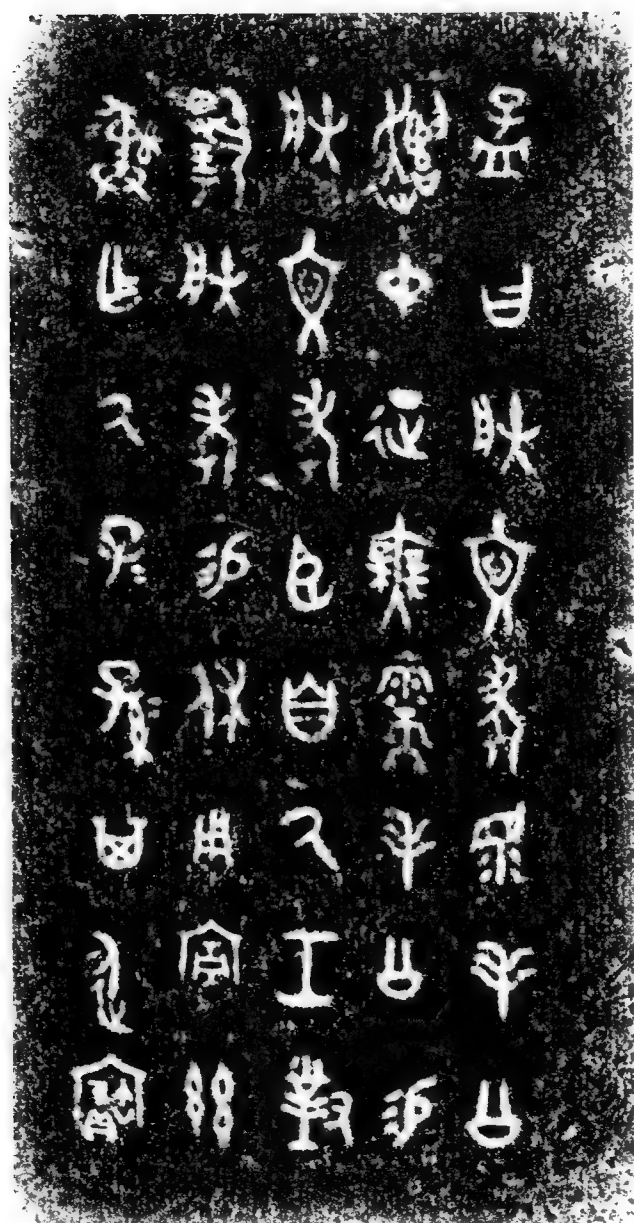 孟曰朕文考眔毛公
遣中征無需毛公易
朕文考臣自厥工對
揚朕考易休用茲
彝乍厥子=孫=其永寶